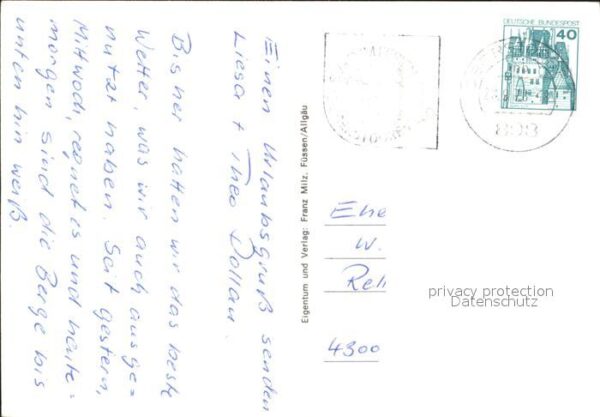 Einen Urlaubsgruß senden
Liesa + Theo Dollau.
Bisher hatten wir das beste
Wetter, was wir auch ausge=
nutzt haben. Seit gestern,
Mittwoch, regnet es und heute-
morgen sind die Berge bis
unten hin weiß.
Eigentum und Verlag: Franz Milz, Füssen/Allgäu
DEUTSCHE BUNDESPOST
40
Ehe
W.
4300
privacy protection
Datenschutz